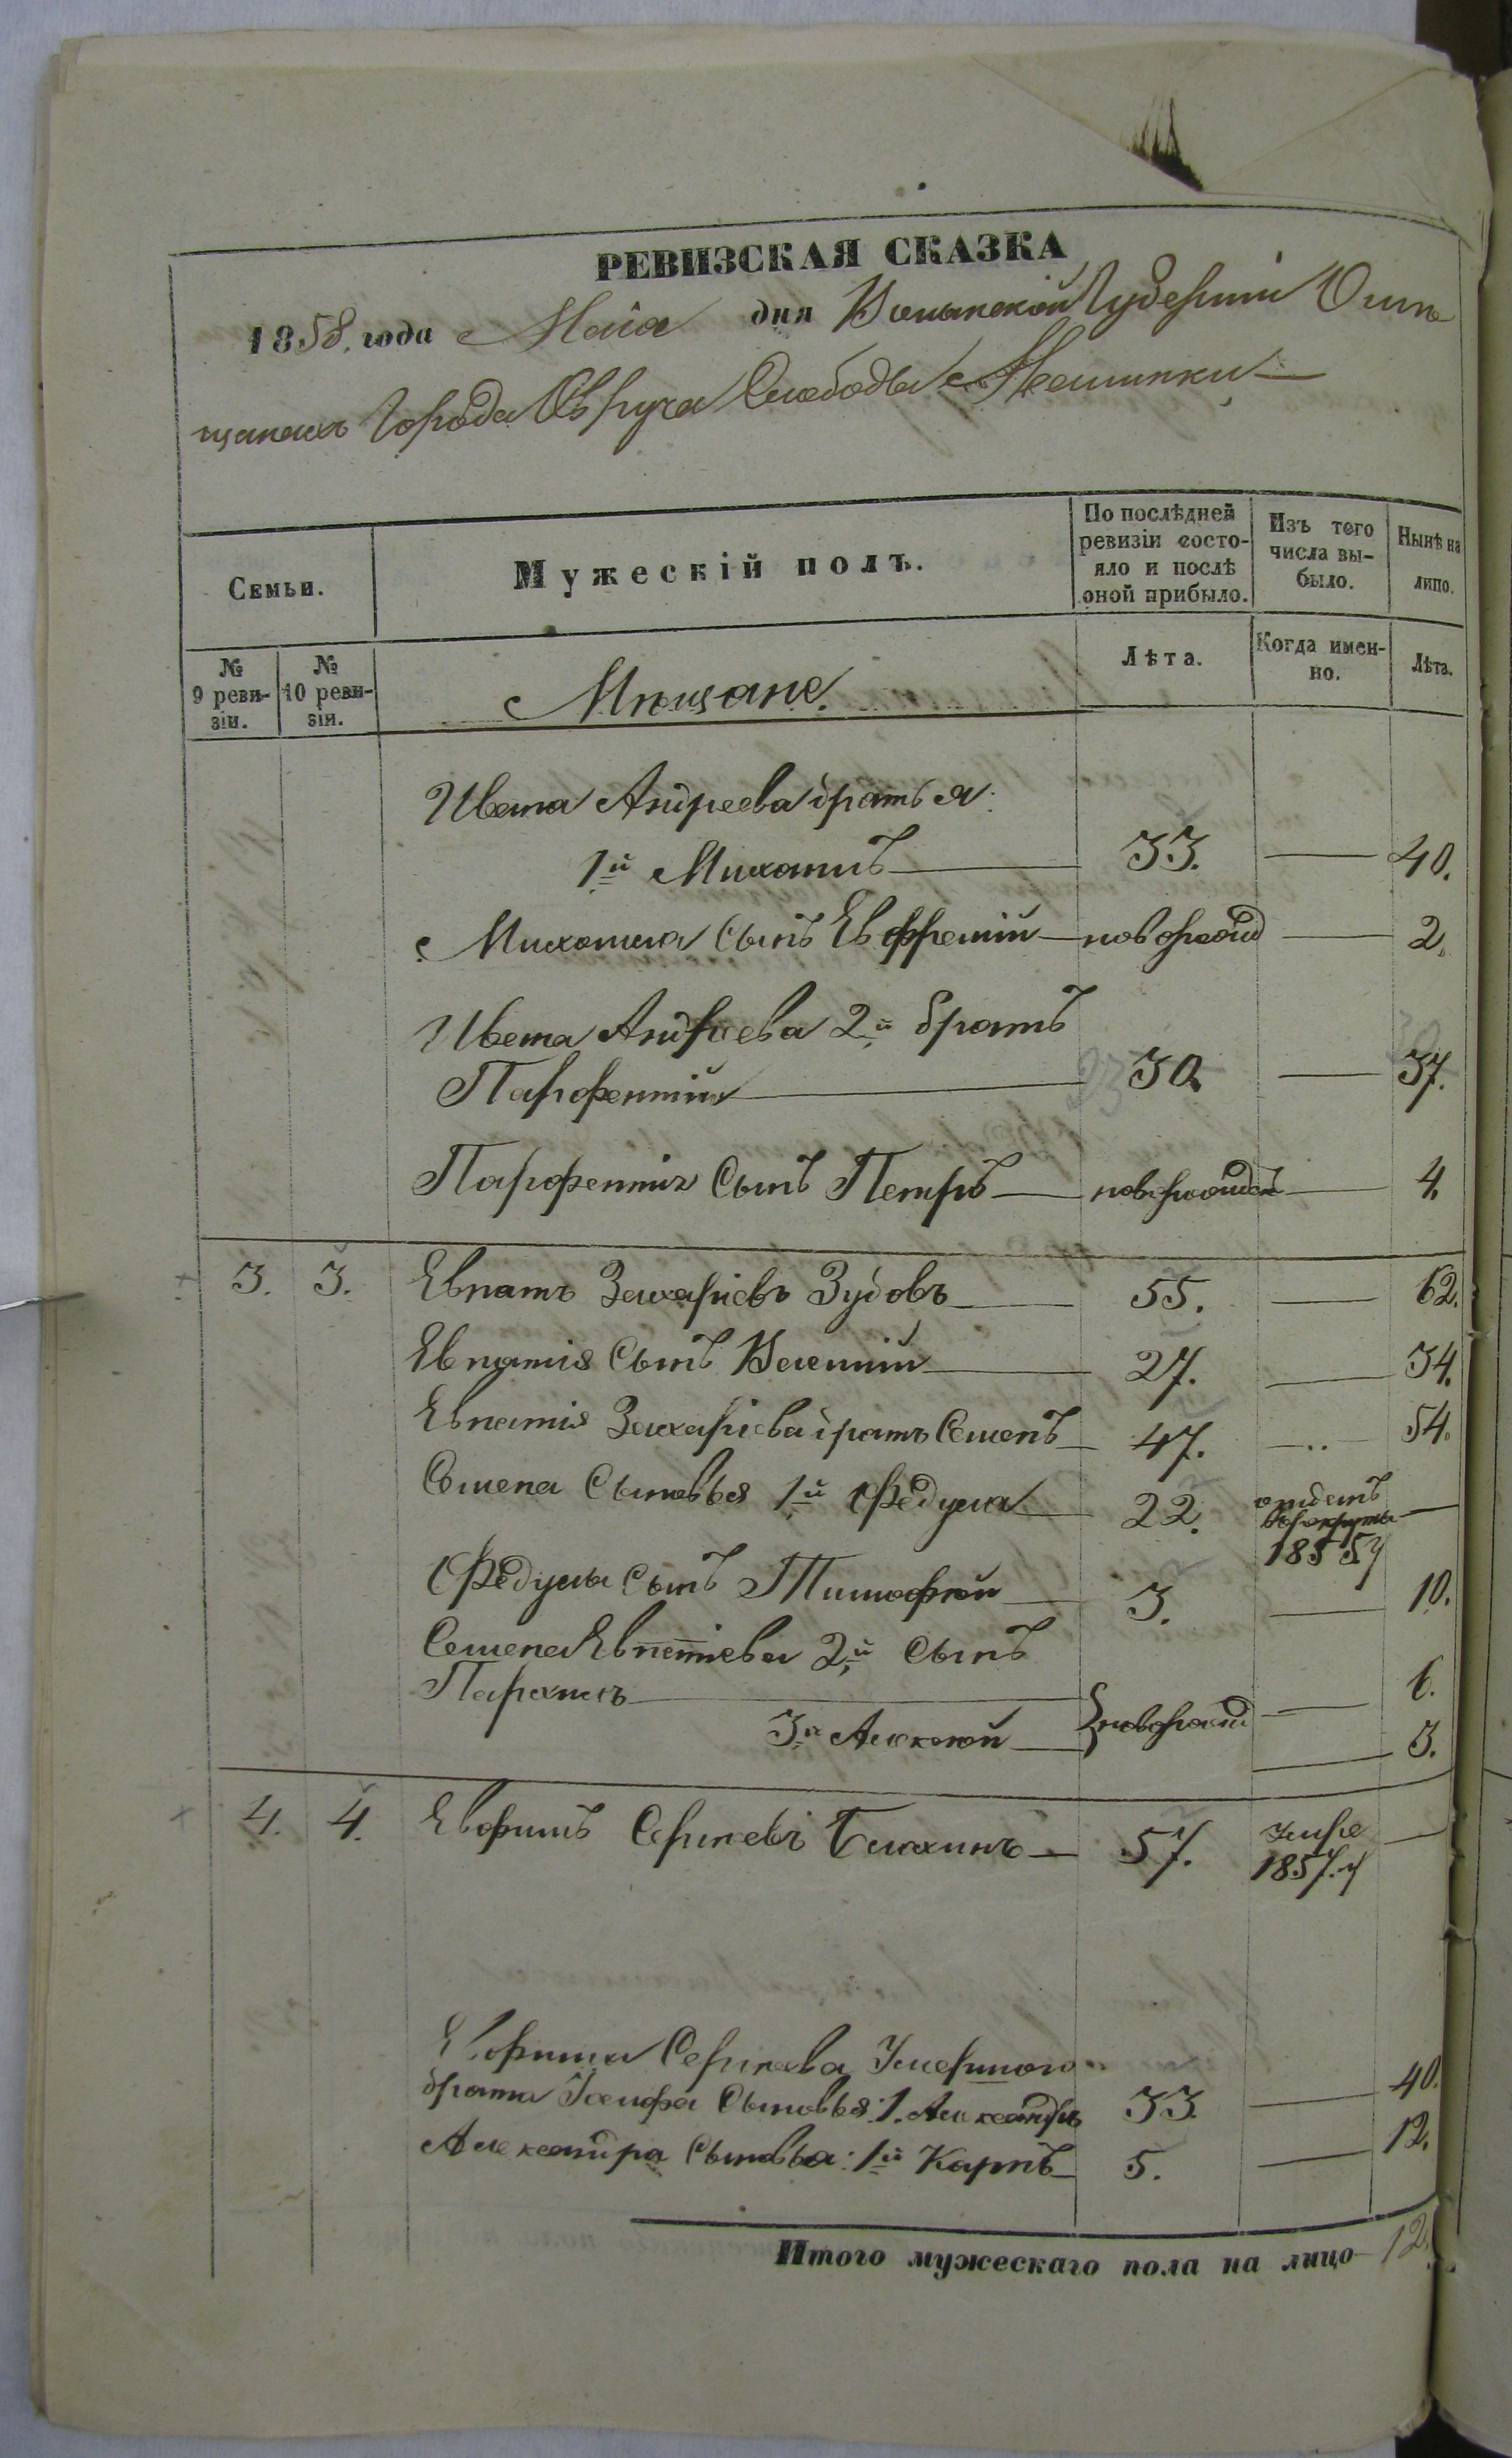 РЕВИЗСКАЯ СКАЗКА
1858. года Маія дня Волынской Губерніи О мѣ-
щанахъ Города Овруча Слободы
Семьи.
Мужескій полъ.
По послѣдней ревизіи состо-яло и послѣ оной прибыло.
Изъ того числа вы-было.
Нынѣ на лицо.
№ 9 реви-зіи.
№ 10 реви-зіи.
Мѣщане.
Лѣта.
Когда имен-но.
Лѣта.
Андреева братья:
1й Михаилъ 33. 40.
Михаила сынъ Евфремій новорожд 2.
Андреева 2й братъ
Парфентій 30. 37.
Парфентія сынъ Петръ новорожден 4.
3. 3. Евпатъ Захаріевъ Зубовъ 55. 62.
Евпатія сынъ 27. 34.
Евпатія Захаріева братъ Семенъ 47. 54.
Семена сыновья 1й Федула 22. отданъ
в рекруты
1855 г
Федулы сынъ Тимофѣй 3. 10.
Семена Евпатіева 2й сынъ
6.
3й Алексѣй новорожд 3.
4. 4. Ефимъ Сергѣевъ 57. умре
1857. г
Ефима Сергѣева Умершого
брата Іосифа сыновья: 1. Александръ 33. 40.
Александра сыновья: 1й Карпъ 5. 12.
Итого мужескаго пола на лицо 12.